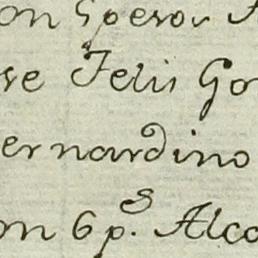 on 6 pesos. A
se Felis Go
ernardino
on 6 p.s Alco